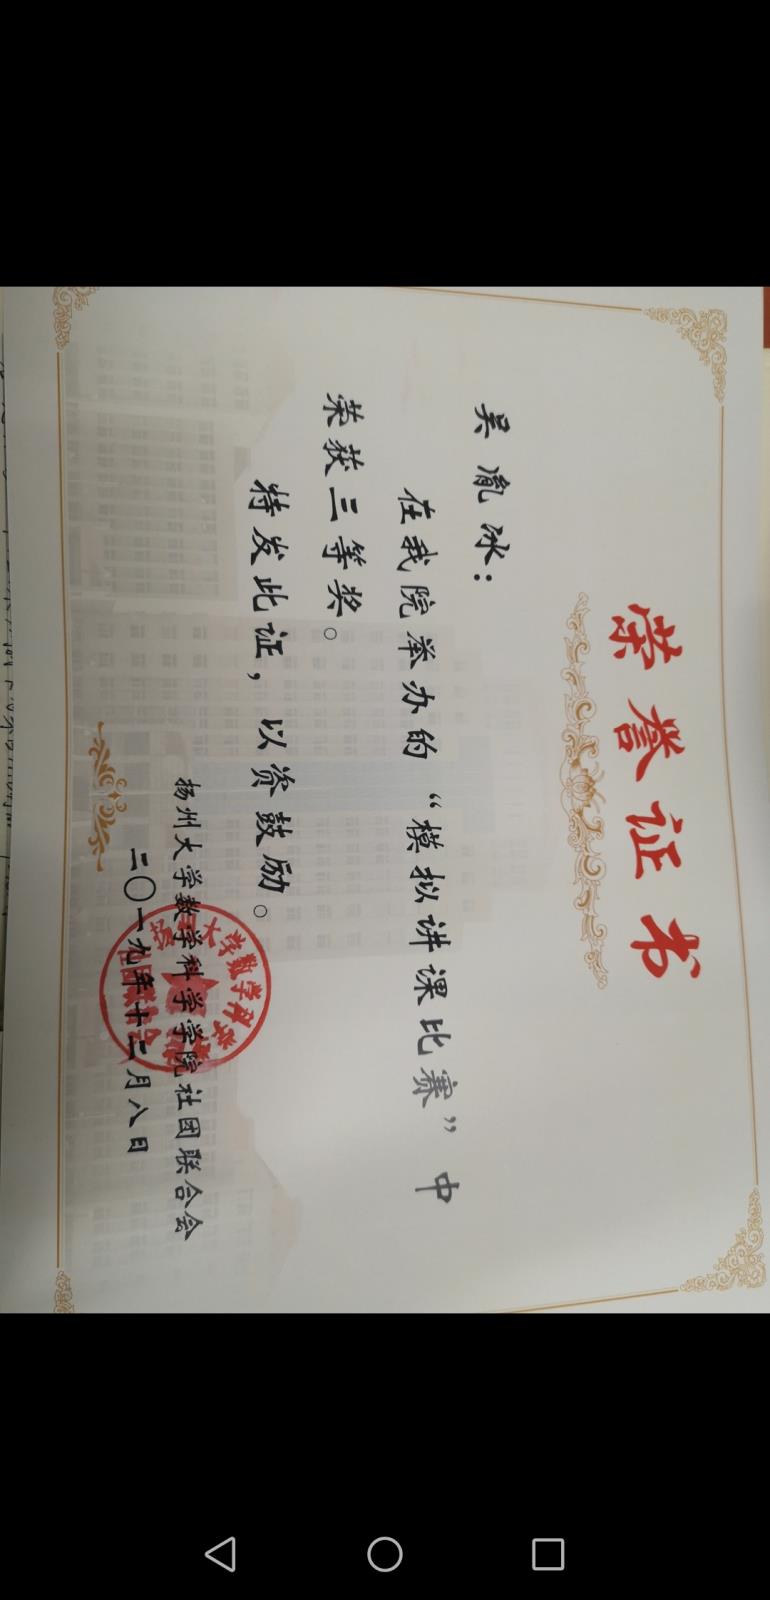 荣誉证书
吴胤冰：
在我院举办的“模拟讲课比赛”中
荣获三等奖。
特发此证，以资鼓励。
扬州大学数学科学学院社团联合会
二〇一九年十二月八日